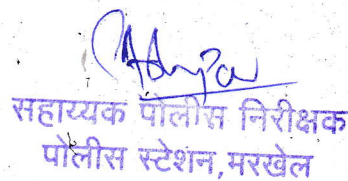 सहाय्यक पोलीस निरीक्षक
पोलीस स्टेशन,मरखेल